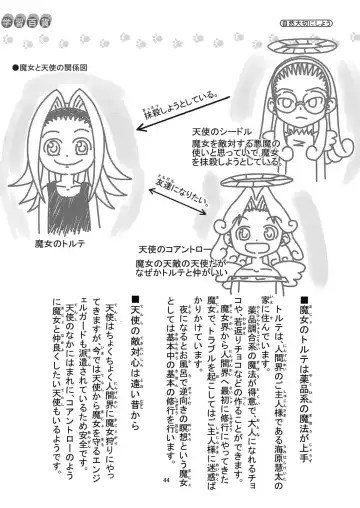 学習百貨
自然大切にしよう
●魔女と天使の関係図
抹殺しようとしている。
まっさつ
天使のシードル
魔女を敵対する悪魔の
使いと思っていて、魔女
を抹殺しようとしている。
友達になりたい。
ともだち
魔女のトルテ
天使のコアントロー
魔女の天敵の天使だが
なぜかトルテと仲がいい
■魔女のトルテは薬品系の魔法が上手
トルテは、人間界のご主人様である海原慧太の
家に住んでいます。
薬品調合系の魔法が得意で、大人になれるチョ
コや、若返りチョコなどの作ることができます。
魔女界から人間界へ最初に修行にやってきた
魔女で、トラブルを起こしてはご主人様に迷惑ば
かりかけています。
夜になるとお風呂で逆向きの瞑想という魔女
としては基本中の基本の修行を行います。
■天使の敵対心は遠い昔から
天使はちょくちょく人間界に魔女狩りにやっ
てきますが、今では天使から魔女を守るエンジ
ェルガードも派遣されているため安全です。
天使のなかにはまれに、コアントローのよう
に魔女と仲良くしたい天使もいるようです。
44